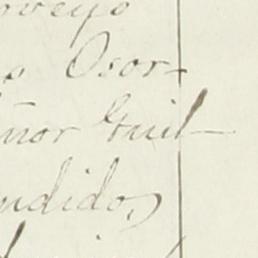 oveyo
o Osor-
ñor Guil-
ndido,